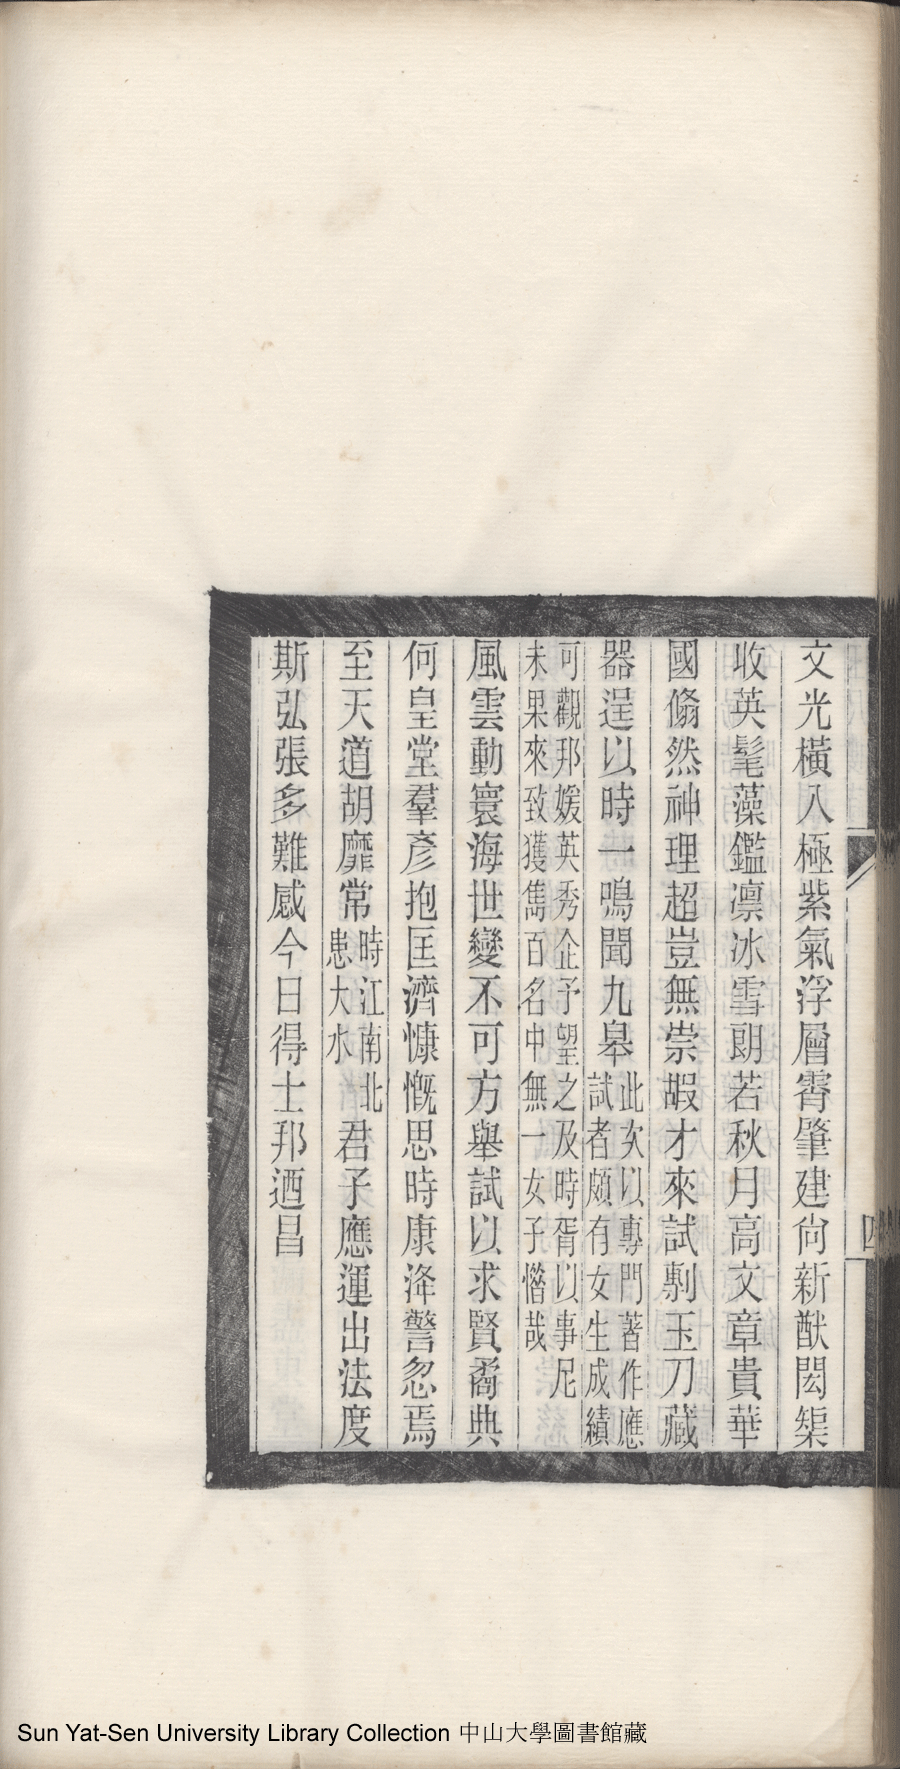 文光橫入極紫氣浮層霄肇建尙新猷閎榘
收英髦藻鑑凛冰雪朗若秋月高文章貴華
國翛然神理超豈無崇嘏才來試剸玉刀藏
器逞以時一鳴聞九皋此次以專門著作應
試者頗有女生成績
可觀邦媛英秀企予望之及時胥以事尼
未果來致獲雋百名中無一女子憯哉
風雲動寰海世變不可方舉試以求賢矞典
何皇堂羣彥抱匡濟慷慨思時康洚警忽焉
至天道胡靡常時江南北
患大水君子應運出法度
斯弘張多難感今日得士邦迺昌
四
Sun Yat-Sen University Library Collection 中山大學圖書館藏